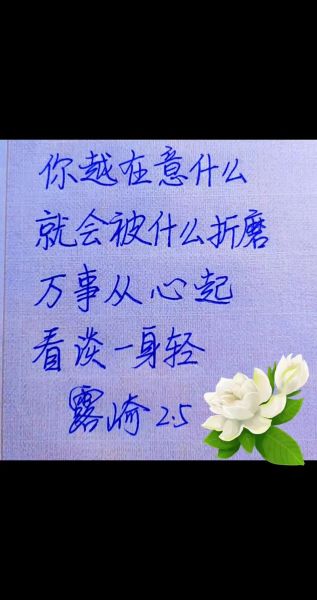 你越在意什么
就会被什么折磨
万事从心起
看淡一身轻
露崎 2.5